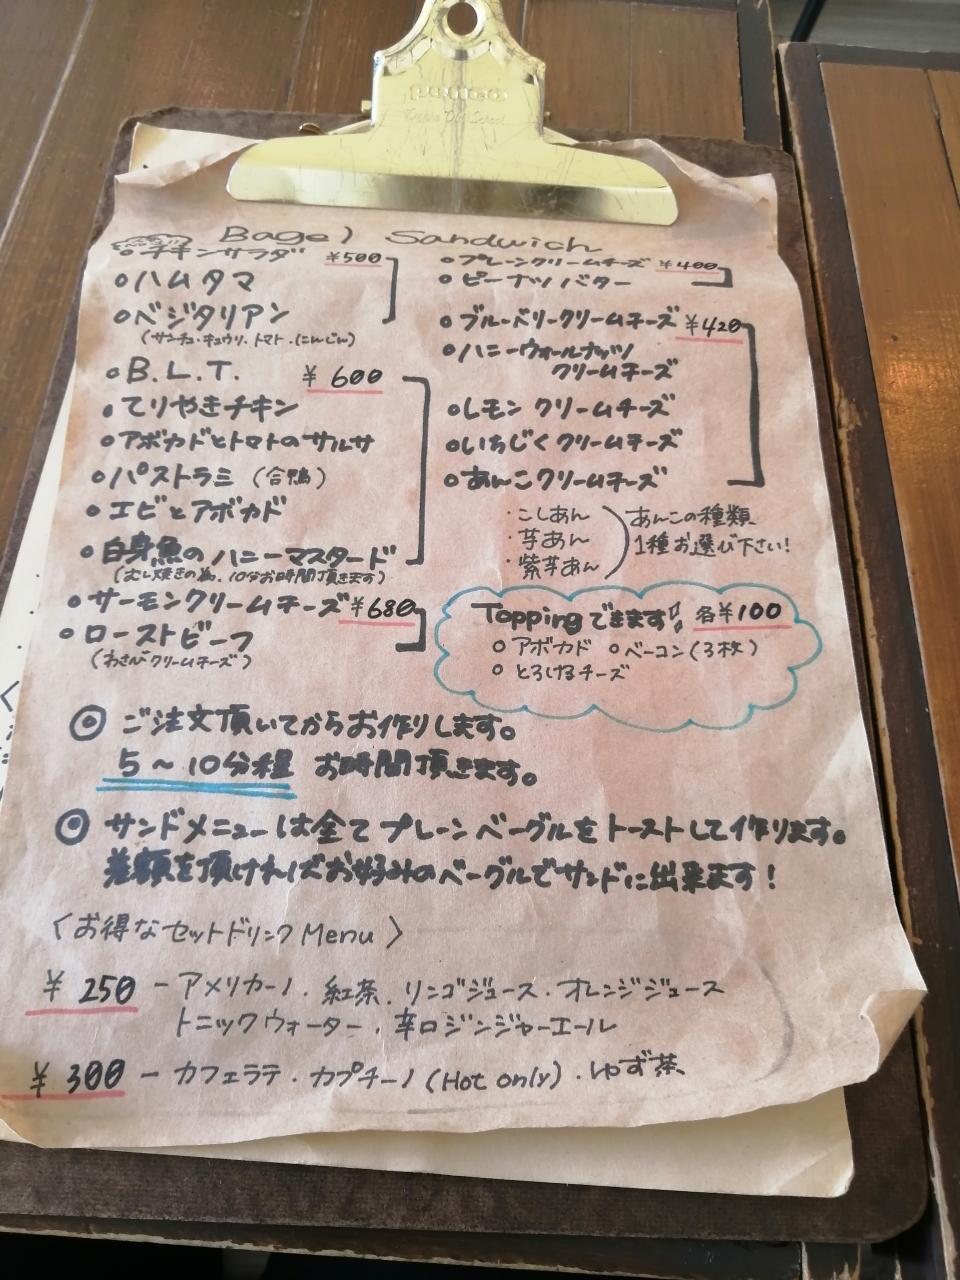 Bagel Sandwich
○チキンサラダ ¥500
○ハムタマ
○ベジタリアン
(サンチュ・キュウリ、トマト、にんじん)
○B.L.T. ¥600
●てりやきチキン
●アボカドとトマトのサルサ
●パストラミ (合鴨)
●エビとアボカド
●白身魚のハニーマスタード
(むし焼きの為、10分お時間頂きます)
●サーモンクリームチーズ ¥680
○ローストビーフ
(わさびクリームチーズ)
○プレーンクリームチーズ ¥400
○ピーナッツバター
●ブルーベリークリームチーズ ¥420
○ハニーウォールナッツ
クリームチーズ
○レモンクリームチーズ
○いちじくクリームチーズ
○あんこクリームチーズ
・こしあん
・芋あん
・紫芋あん
あんこの種類
1種お選び下さい!
Toppingできます!! 各¥100
○アボカド ○ベーコン(3枚)
○とろけるチーズ
◎ご注文頂いてからお作りします。
5〜10分程 お時間頂きます。
◎サンドメニューは全てプレーンベーグルをトーストして作ります。
差額を頂ければお好みのベーグルでサンドに出来ます!
〈お得なセットドリンクMenu〉
¥250 ーアメリカーノ、紅茶、リンゴジュース・オレンジジュース
トニックウォーター・辛口ジンジャーエール
¥300 ーカフェラテ・カプチーノ(Hot only)・ゆず茶